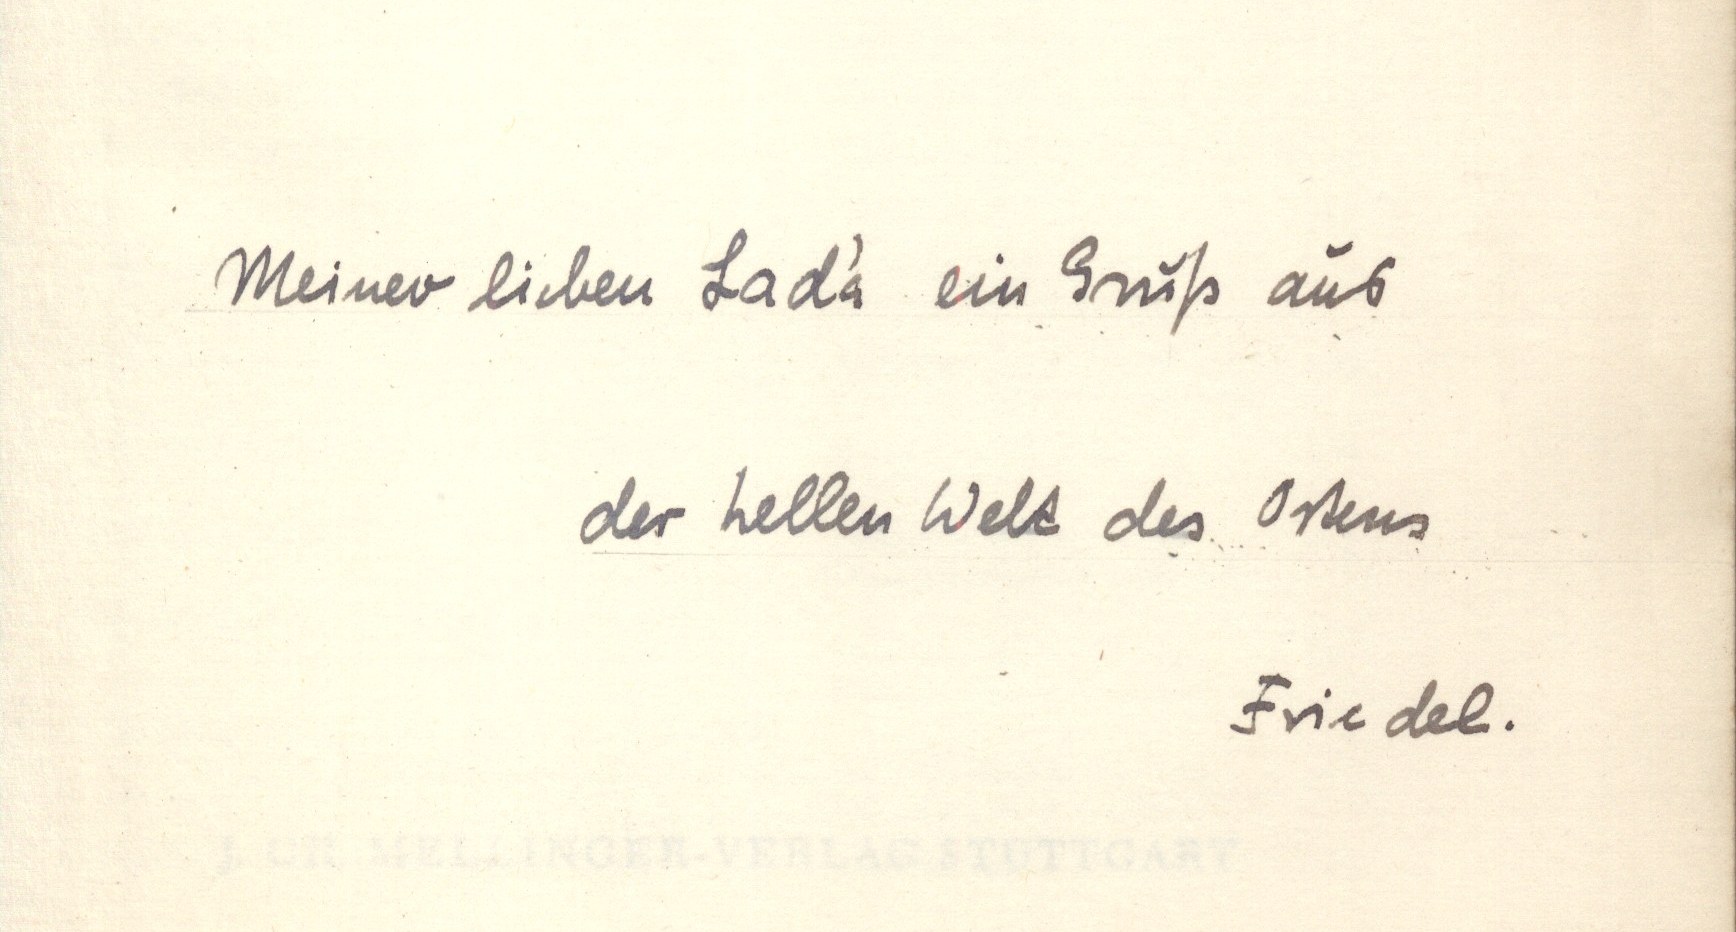 Meiner lieben Lad'a ein Gruß aus
der hellen Welt des Ostens
Friedel.
J. CH. MELLINGER-VERLAG STUTTGART